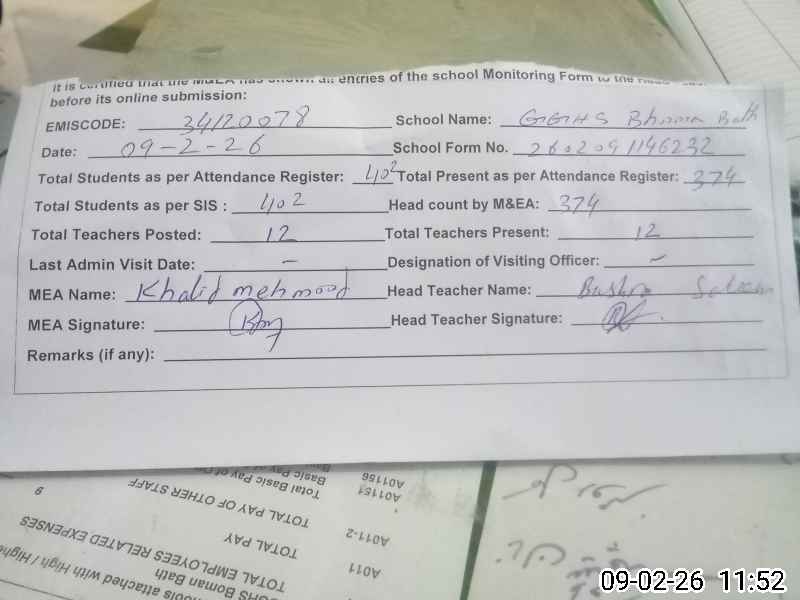 It is certified that the M&EA has shown all entries of the school Monitoring Form to the Head
before its online submission:
EMISCODE: 34120078 School Name: GGHS Bhoman Bath
Date: 09-2-26 School Form No. 2602091146232
Total Students as per Attendance Register: 402 Total Present as per Attendance Register: 374
Total Students as per SIS : 402 Head count by M&EA: 374
Total Teachers Posted: 12 Total Teachers Present: 12
Last Admin Visit Date: - Designation of Visiting Officer: -
MEA Name: Khalid mehmood Head Teacher Name: Bushra Saleem
MEA Signature: Head Teacher Signature:
Remarks (if any):
A01156 Basic Pay of
A01151 Total Basic Pay of
A011-2 TOTAL PAY OF OTHER STAFF 9
A011 TOTAL PAY
TOTAL EMPLOYEES RELATED EXPENSES
GHS Boman Bath
ools attached with High / Highe
09-02-26 11:52